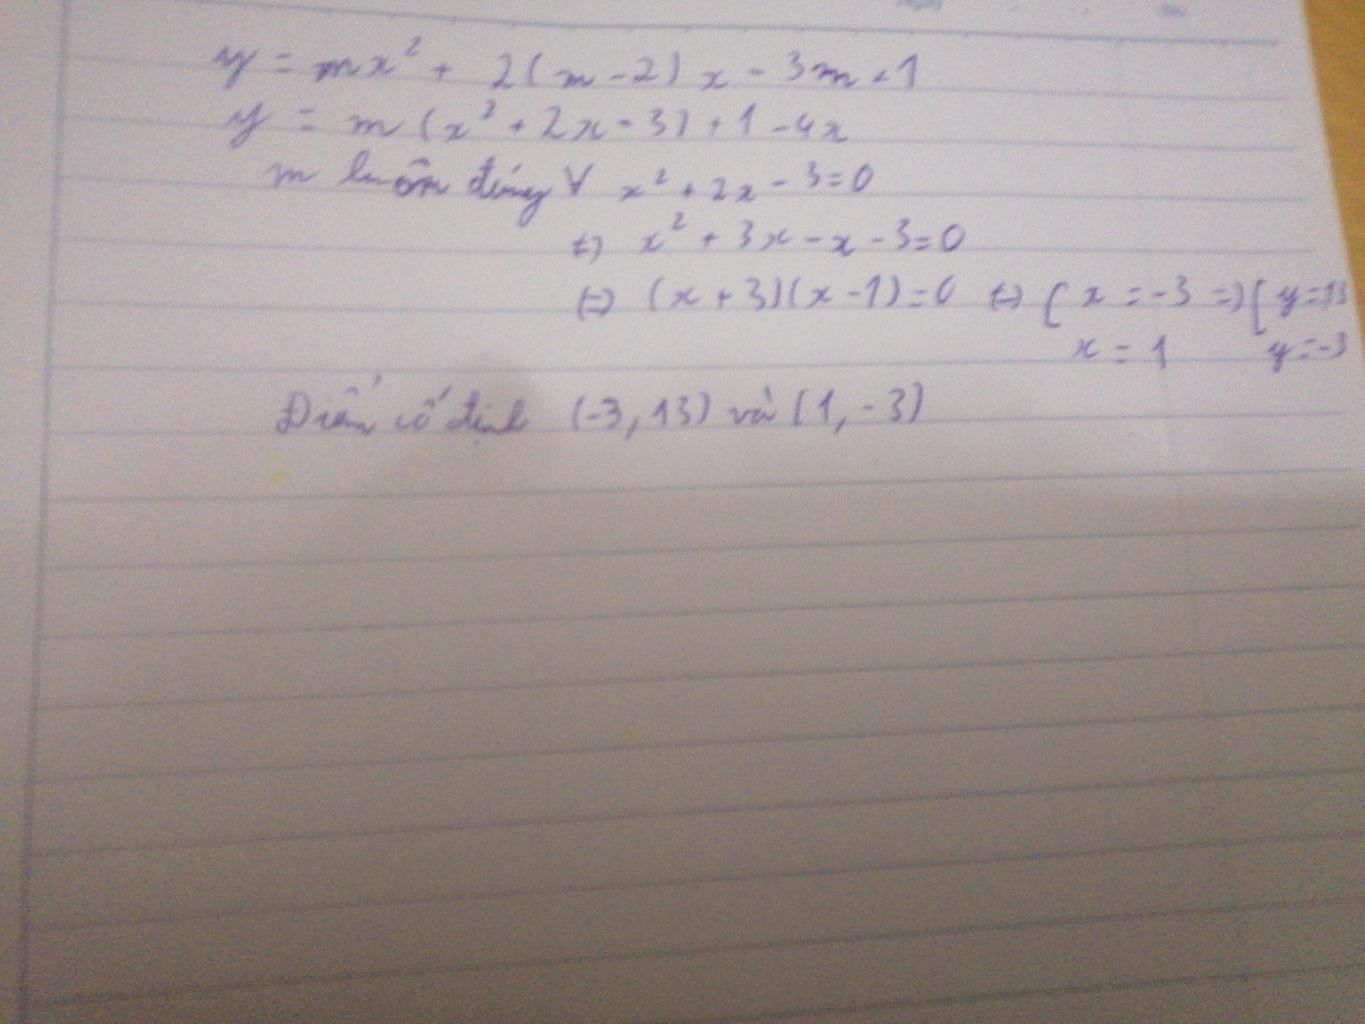 y = mx² + 2(m - 2)x - 3m + 1
y = m(x² + 2x - 3) + 1 - 4x
m luôn đúng ∀ x² + 2x - 3 = 0
⇔ x² + 3x - x - 3 = 0
⇔ (x + 3)(x - 1) = 0 ⇔ [ x = -3 ⇒ [ y = 13
x = 1 y = -3
Điểm cố định (-3, 13) và (1, -3)